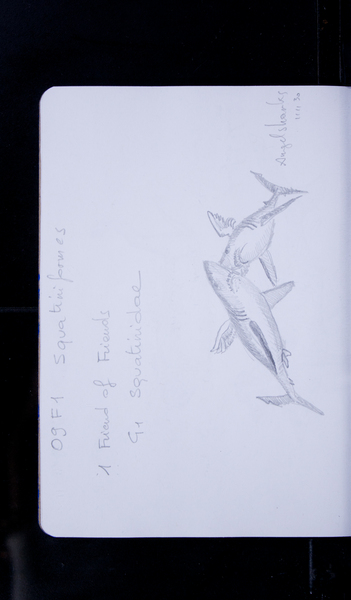 09F1 Squatiniformes
1 Friend of Friends
G1 Squatinidae
Angelsharks
11.11.20